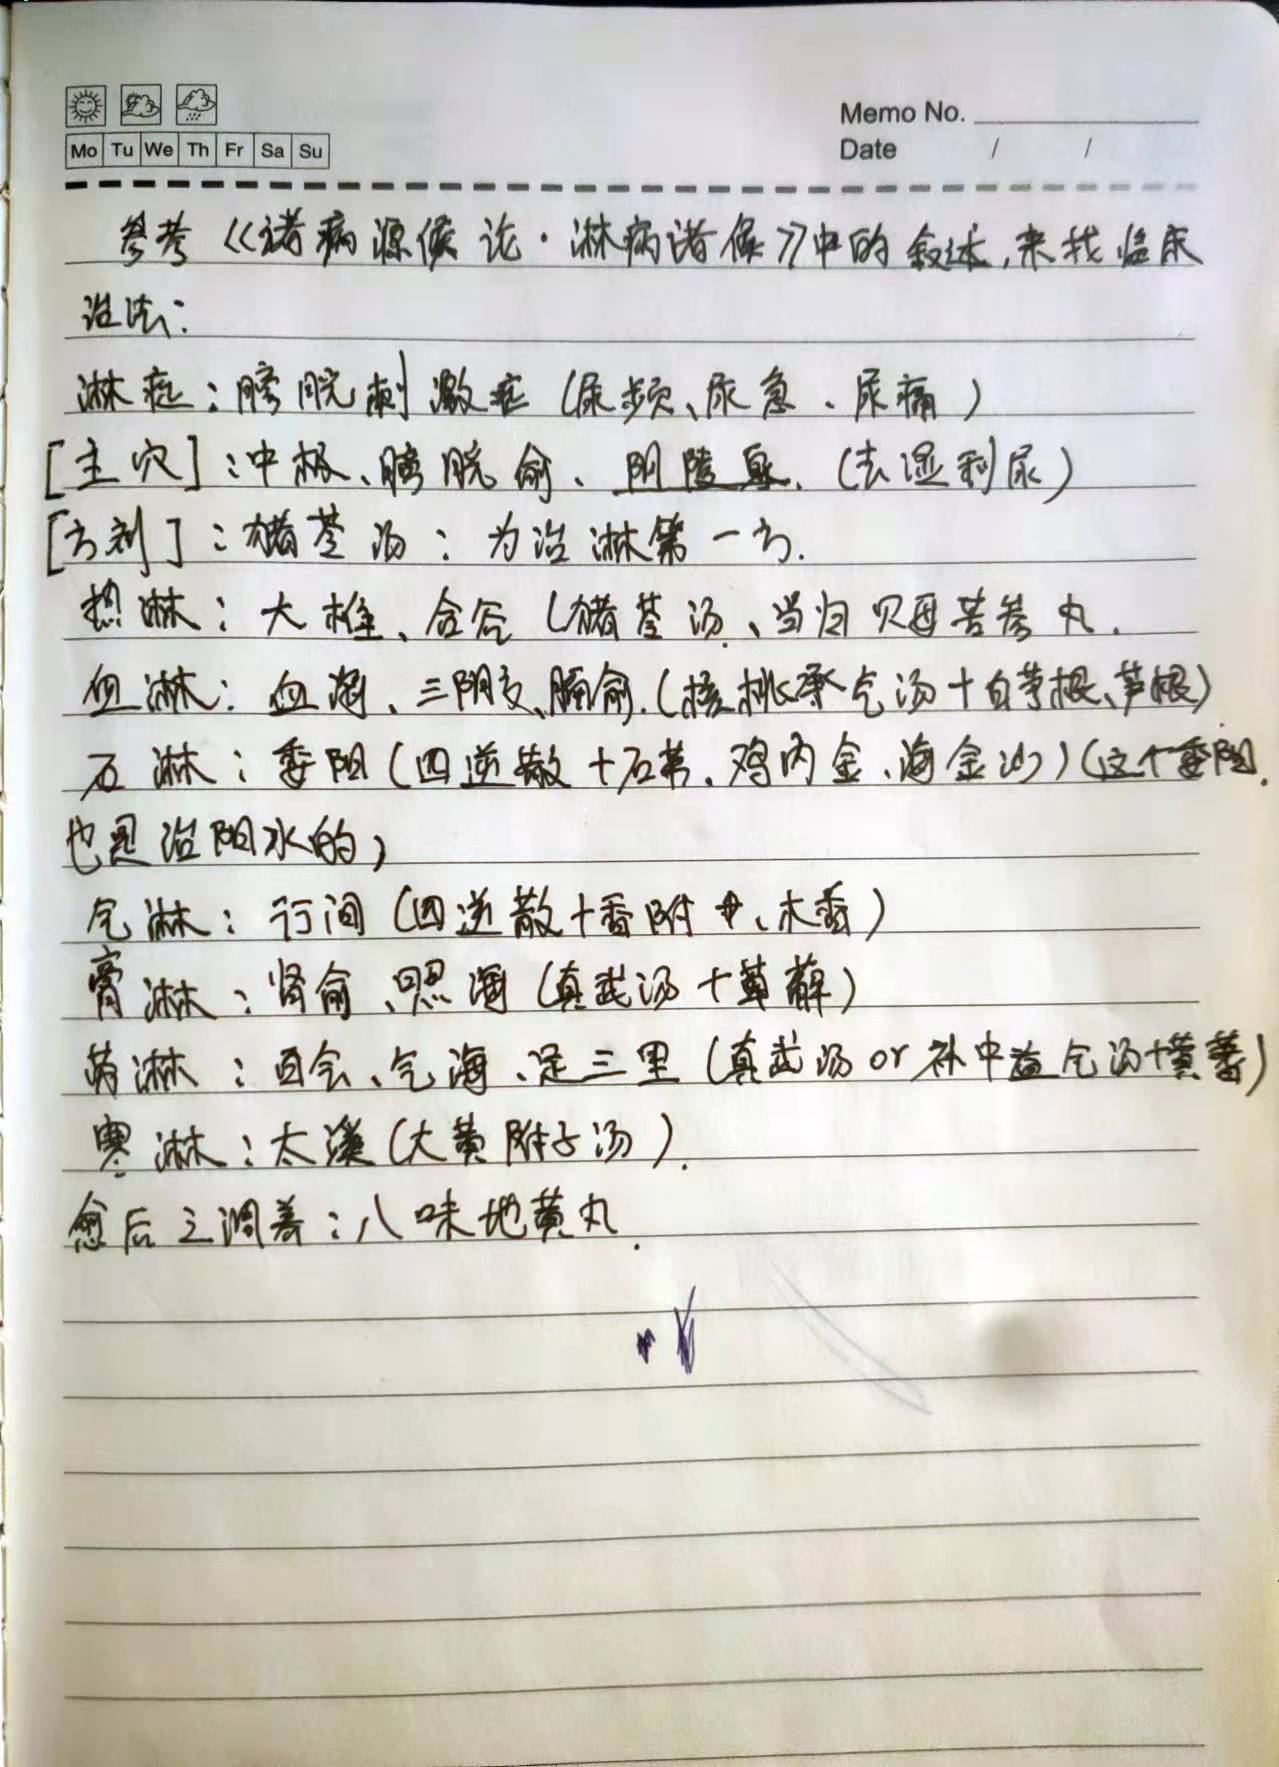 Memo No.
Mo Tu We Th Fr Sa Su
Date / /
参考《诸病源候论·淋病诸候》中的叙述,来找临床
治法:
淋症:膀胱刺激症(尿频、尿急、尿痛)
[主穴]:中极、膀胱俞、阴陵泉.(去湿利尿)
[方剂]:猪苓汤:为治淋第一方.
热淋:大椎、合谷(猪苓汤、当归贝母苦参丸.
血淋:血海、三阴交、膈俞.(核桃承气汤+白茅根、芦根)
石淋:委阳(四逆散+石苇、鸡内金、海金沙)(这个委阳.
也是治阳水的)
气淋:行间(四逆散+香附、木香)
膏淋:肾俞、照海(真武汤+萆薢)
劳淋:百会、气海、足三里(真武汤or补中益气汤+黄蓍)
寒淋:太溪(大黄附子汤).
愈后之调养:八味地黄丸.